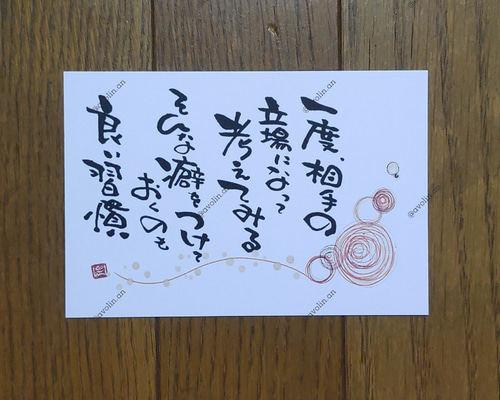 一度、相手の
立場になって
考えてみる
そんな癖をつけて
おくのも
良い習慣
@avolin.an
@avolin.an
@avolin.an
@avolin.an
@avolin.an
@avolin.an